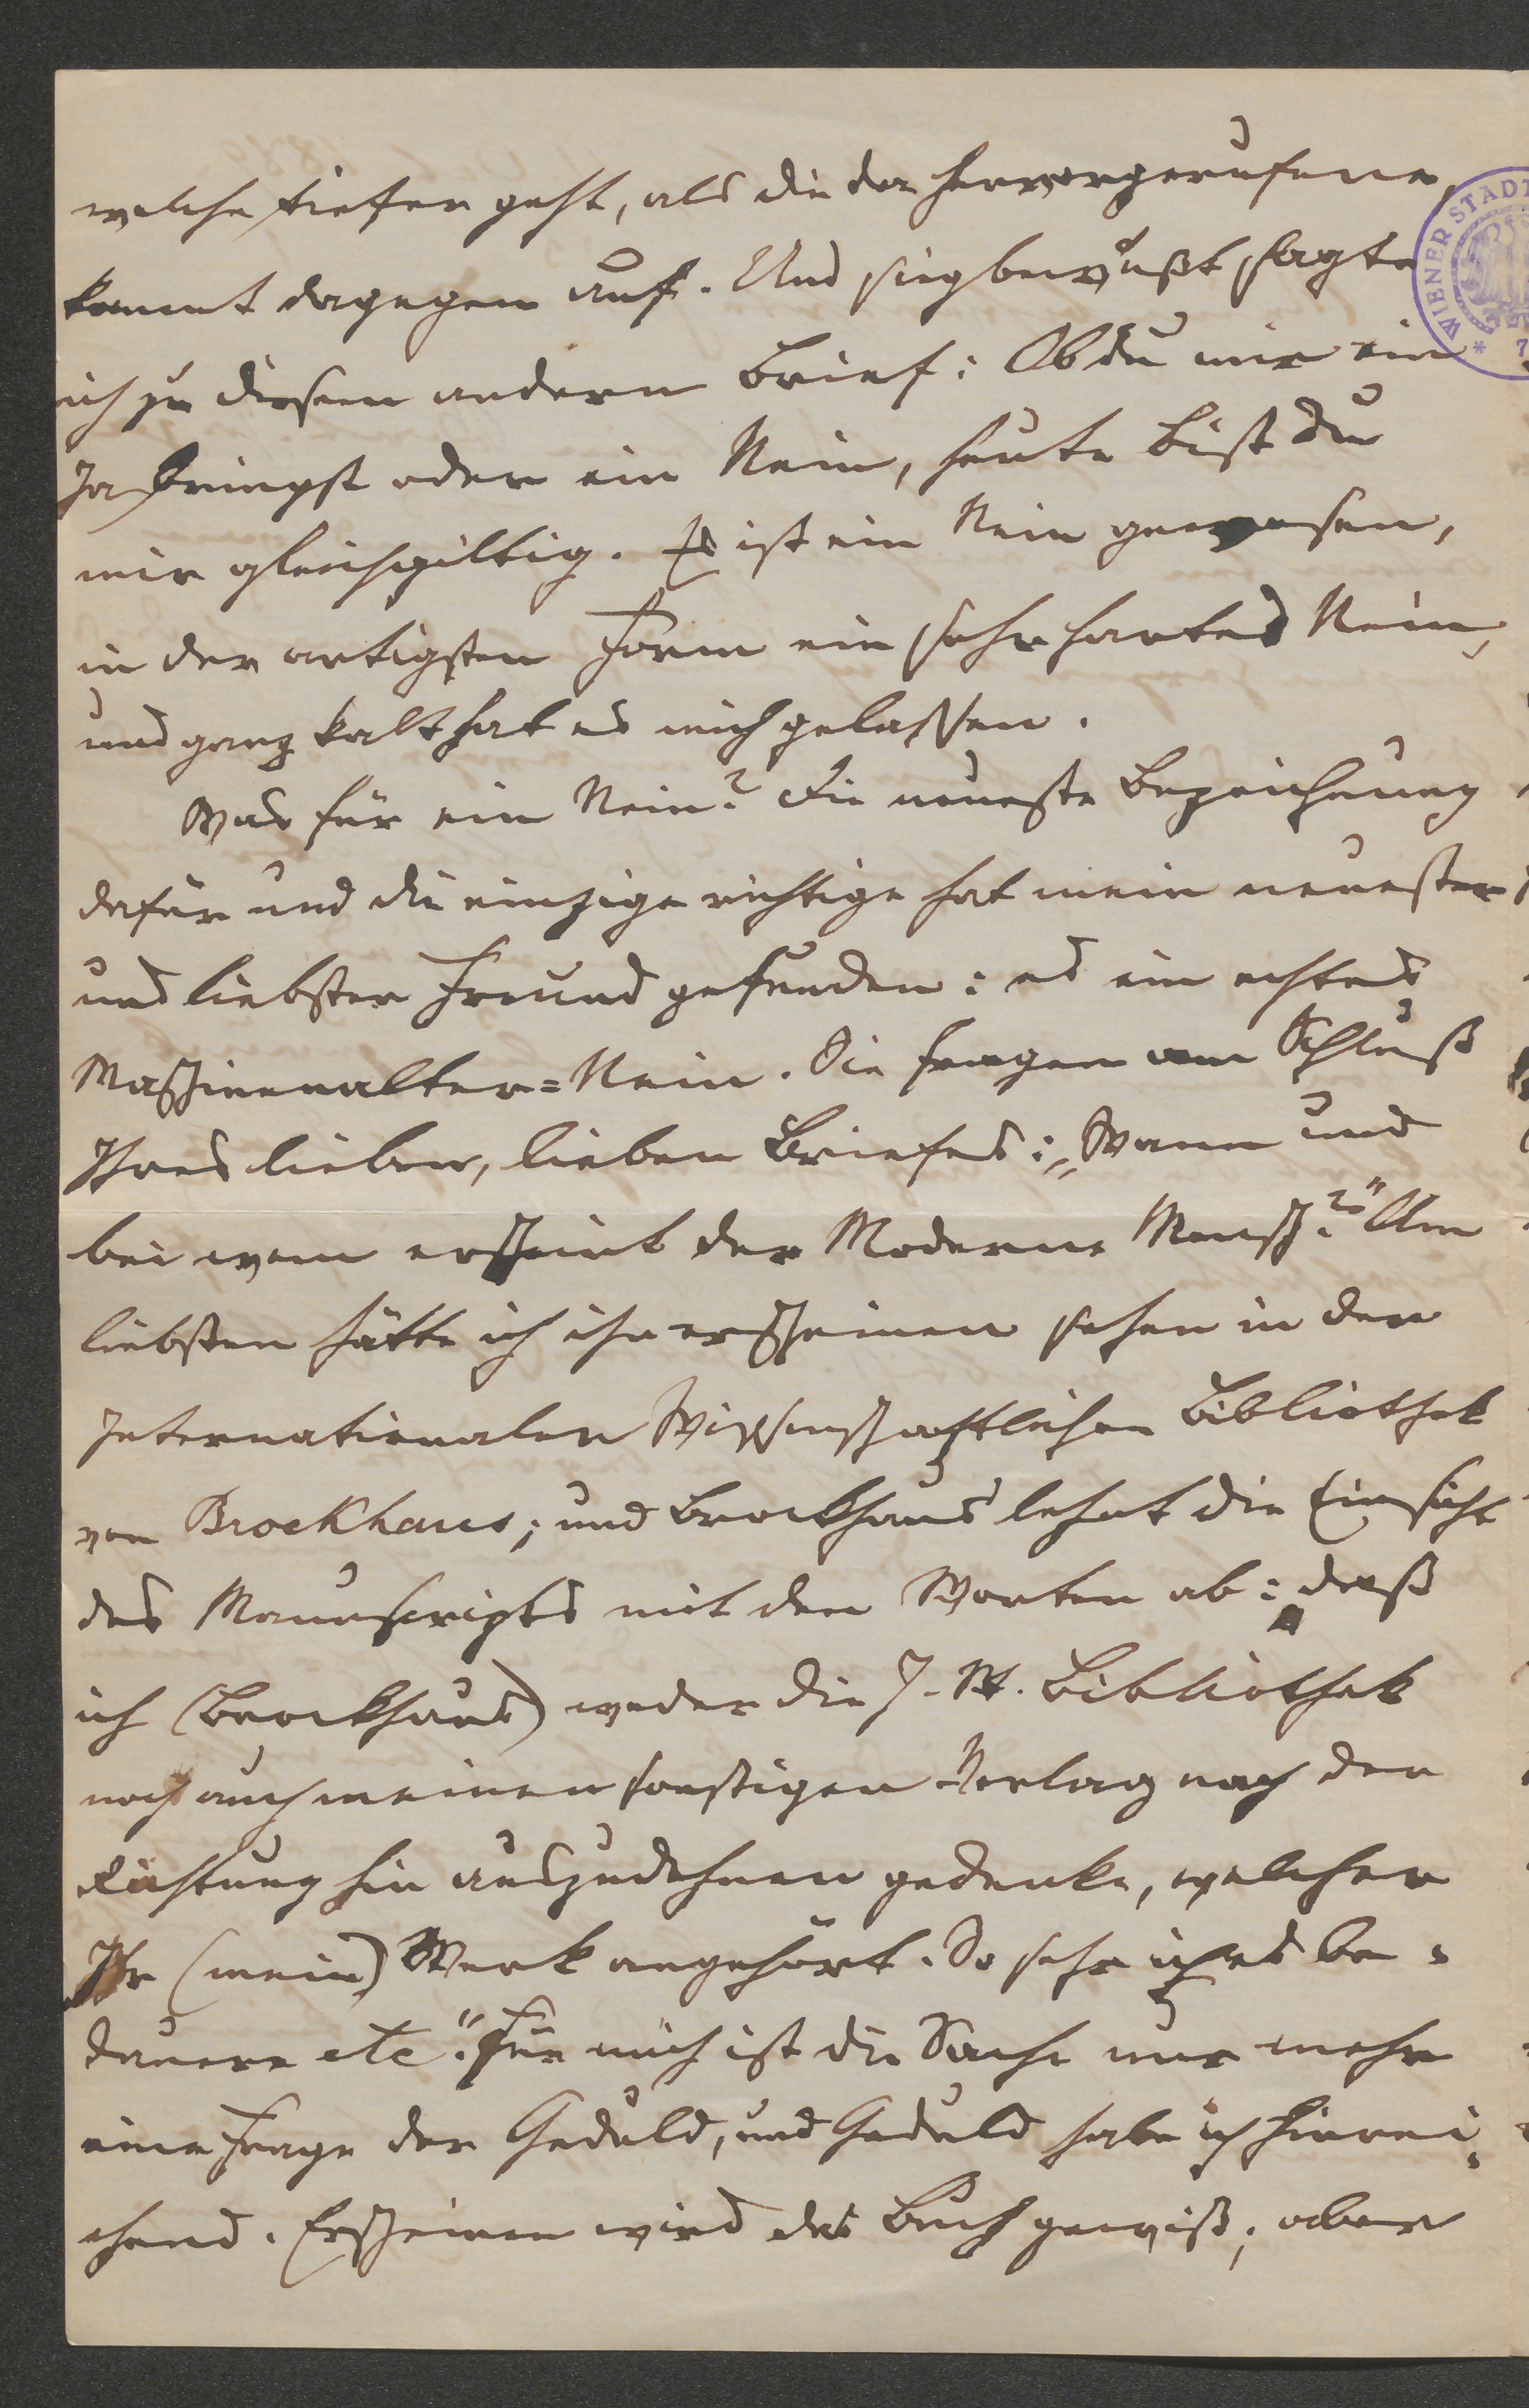 welche tiefer geht, als die da hervorgerufene,
kommt dagegen auf. Und siegbewußt sagte
ich zu diesem andern Brief: Ob du mir ein
Ja bringst oder ein Nein, heute bist du
mir gleichgiltig. Es ist ein Nein gewesen,
in der artigsten Form ein sehr hartes Nein,
und ganz kalt hat es mich gelassen.
Was für ein Nein? Die neueste Bezeichnung
dafür und die einzige richtige hat mein neuester
und liebster Freund gefunden: es ein echtes
Maschinenalter-Nein. Sie fragen am Schluß
Ihres lieben, lieben Briefes: „Wann und
bei wem erscheint der Moderne Mensch?“ Am
liebsten hätte ich ihn erscheinen sehen in der
Internationalen Wissenschaftlichen Bibliothek
von Brockhaus; und Brockhaus lehnt die Einsicht
des Manuscripts mit den Worten ab: daß
ich (Brockhaus) weder die I. W. Bibliothek
noch auch meinen sonstigen Verlag nach der
Richtung hin auszudehnen gedenke, welcher
Ihr (mein) Werk angehört. So sehr ich es be-
dauere etc“. Für mich ist die Sache nur mehr
eine Frage der Geduld, und Geduld habe ich hinrei-
chend. Erscheinen wird das Buch gewiß; aber
WIENER STADT
* 7